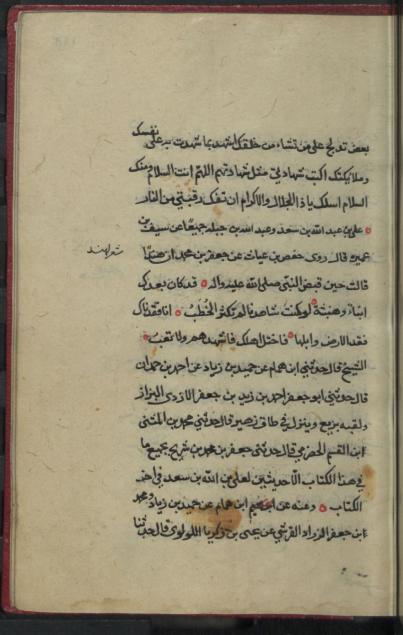 بعض تدلج على من تشاء من خلقك اشهد بما شهدت به على نفسك
وملايكتك اكتب شهادتي مثل شهادتهم اللهم انت السلام ومنك
السلام اسلك ياذا الجلال والاكرام ان تفك رقبتي من النار
على بن عبد الله بن سعد وعبد الله بن جبله جميعا عن سيف بن
عميره قال روى حفص بن غياث عن جعفر بن محمد ان
قالت حين قبض النبي صلى الله عليه واله قد كان بعدك
انباء وهنبثة لو كنت شاهدها لم يكثر الخطب انا فقدناك
فقد الارض وابلها فاختل اهلك فاشهدهم ولا تغب
الشيخ قال حدثني ابن همام عن حميد بن زياد عن احمد بن
قال حدثني ابو جعفر احمد بن زيد بن جعفر الازدي البزاز
ولقبه بزيع وينزل في طاق زهير قال حدثني محمد بن المثنى
ابن القسم الحضرمي قال حدثنى جعفر بن محمد بن شريح بجميع ما
في هذا الكتاب الا حديثين لعلى بن الله بن سعد في اخر
الكتاب وعنه عن ابن همام عن حميد بن زياد ومحمد
ابن جعفر الرزاد القرشي عن يحيى بن زكريا اللولوى قال حدثنا